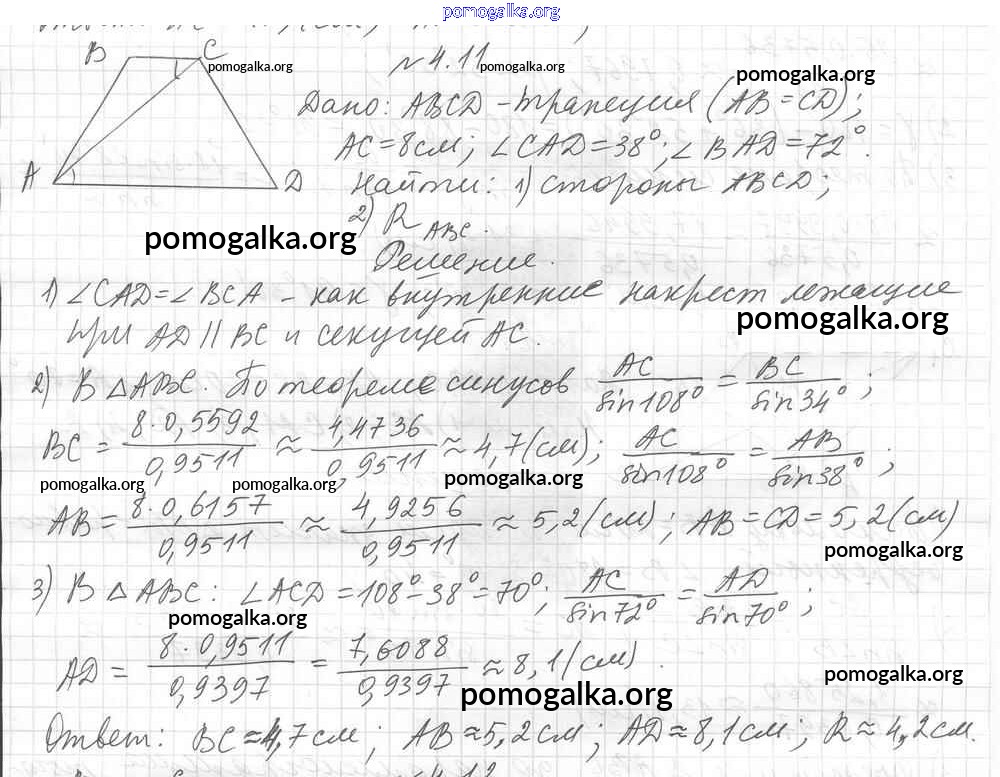 pomogalka.org
B C pomogalka.org №4.11 pomogalka.org
pomogalka.org
Дано: ABCD – трапеция (AB = CD);
AC = 8 см; ∠CAD = 38°; ∠BAD = 72°.
A D Найти: 1) стороны ABCD;
2) R ABC.
pomogalka.org
Решение.
1) ∠CAD = ∠BCA – как внутренние накрест лежащие
pomogalka.org
при AD || BC и секущей AC.
2) В △ABC. По теореме синусов AC/sin108° = BC/sin34°;
BC = 8·0,5592/0,9511 ≈ 4,4736/0,9511 ≈ 4,7 (см); AC/sin108° = AB/sin38°;
pomogalka.org pomogalka.org pomogalka.org
AB = 8·0,6157/0,9511 ≈ 4,9256/0,9511 ≈ 5,2 (см); AB = CD = 5,2 (см)
pomogalka.org
3) В △ABC: ∠ACD = 108° – 38° = 70°; AC/sin72° = AD/sin70°;
pomogalka.org
AD = 8·0,9511/0,9397 = 7,6088/0,9397 ≈ 8,1 (см).
pomogalka.org
pomogalka.org
Ответ: BC ≈ 4,7 см; AB ≈ 5,2 см; AD ≈ 8,1 см; R ≈ 4,2 см.